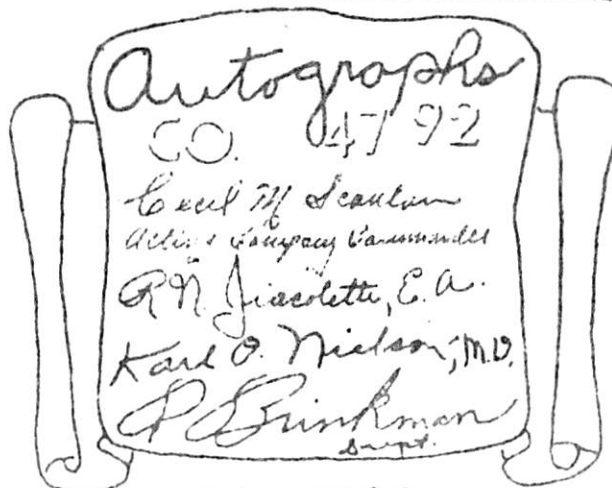 Autographs
CO. 4792
Cecil M Scanlan
Acting Company Commander
R N Jiacolette, E. A.
Karl O. Nielson, M.D.
Brinkman
Supt.